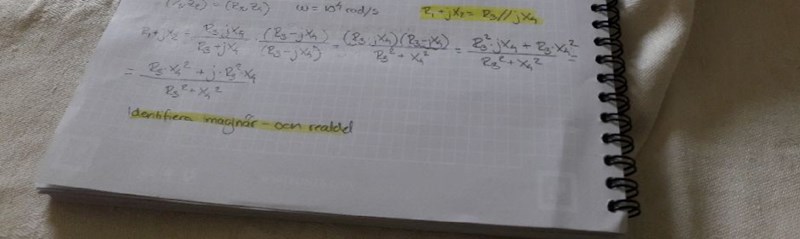 ω = 10⁴ rad/s R₁+jX₂ = R₃//jX₄
R₁+jX₂ = R₃·jX₄/(R₃+jX₄) · (R₃-jX₄)/(R₃-jX₄) = (R₃·jX₄)(R₃-jX₄)/(R₃²+X₄²) = (R₃²·jX₄ + R₃·X₄²)/(R₃²+X₄²) =
= (R₃·X₄² + j·R₃²·X₄)/(R₃²+X₄²)
Identifiera imaginär- och realdel